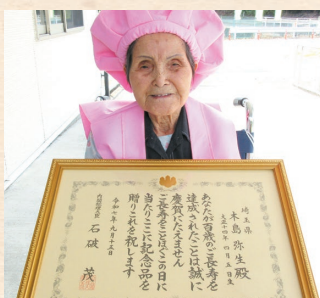 埼玉県
木島 弥生 殿
大正十四年四月七日生
あなたが百歳のご長寿を
達成されたことは誠に
慶賀にたえません
ご長寿をことほぐこの日に
当たりここに記念品を
贈りこれを祝します
令和七年九月十五日
内閣総理大臣 石破 茂